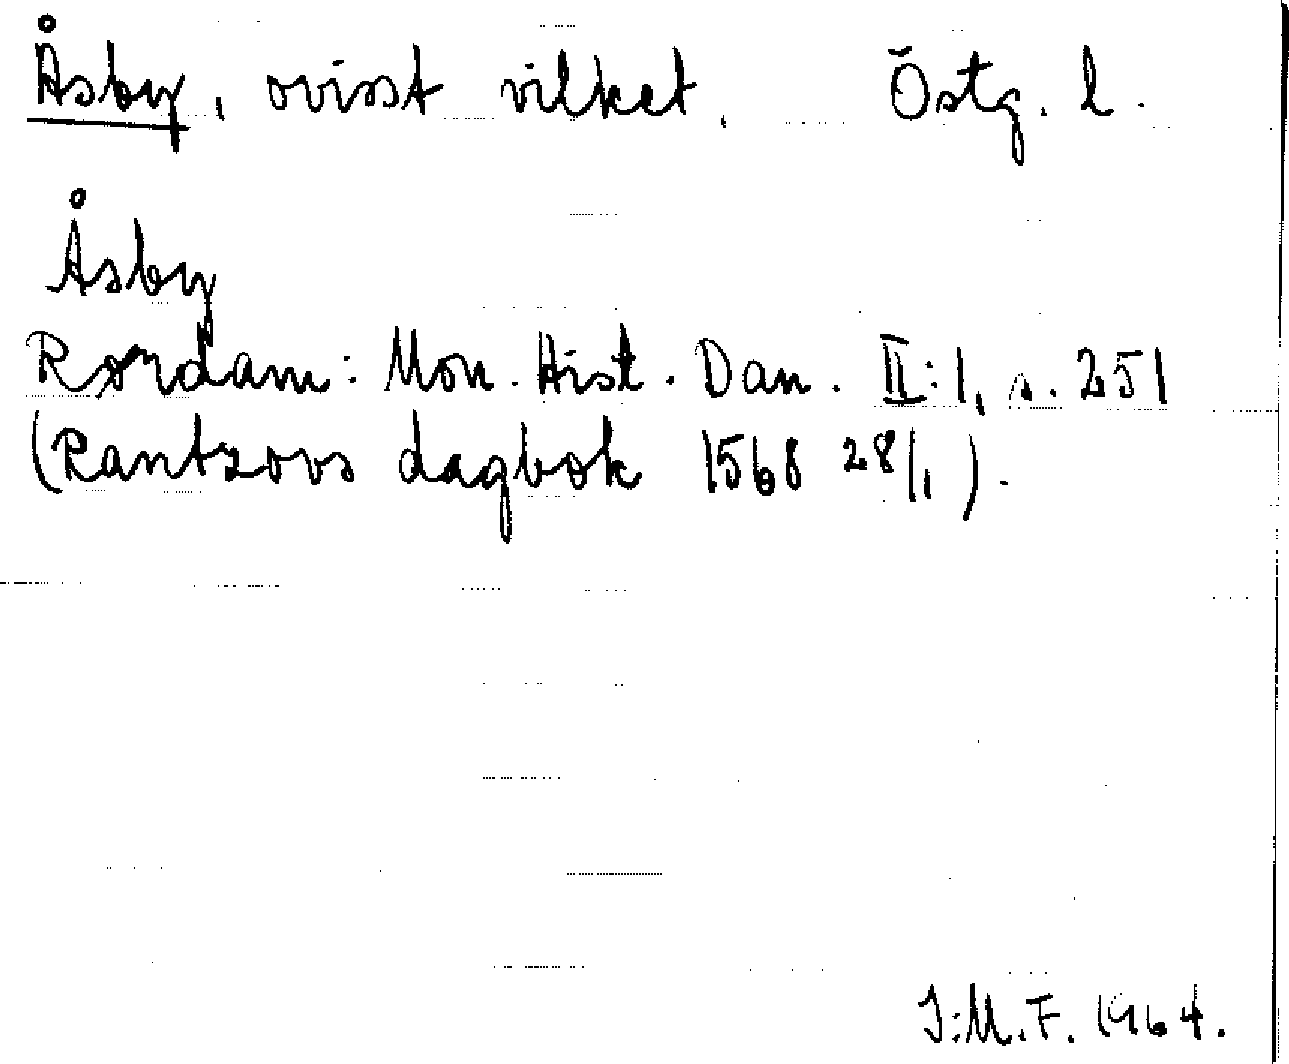 Åsby, ovisst vilket. Östg. l.
Åsby
Rørdam: Mon. Hist. Dan. II:1, s. 251
(Rantzovs dagbok 1568 28/1).
I:M.F. 1964.